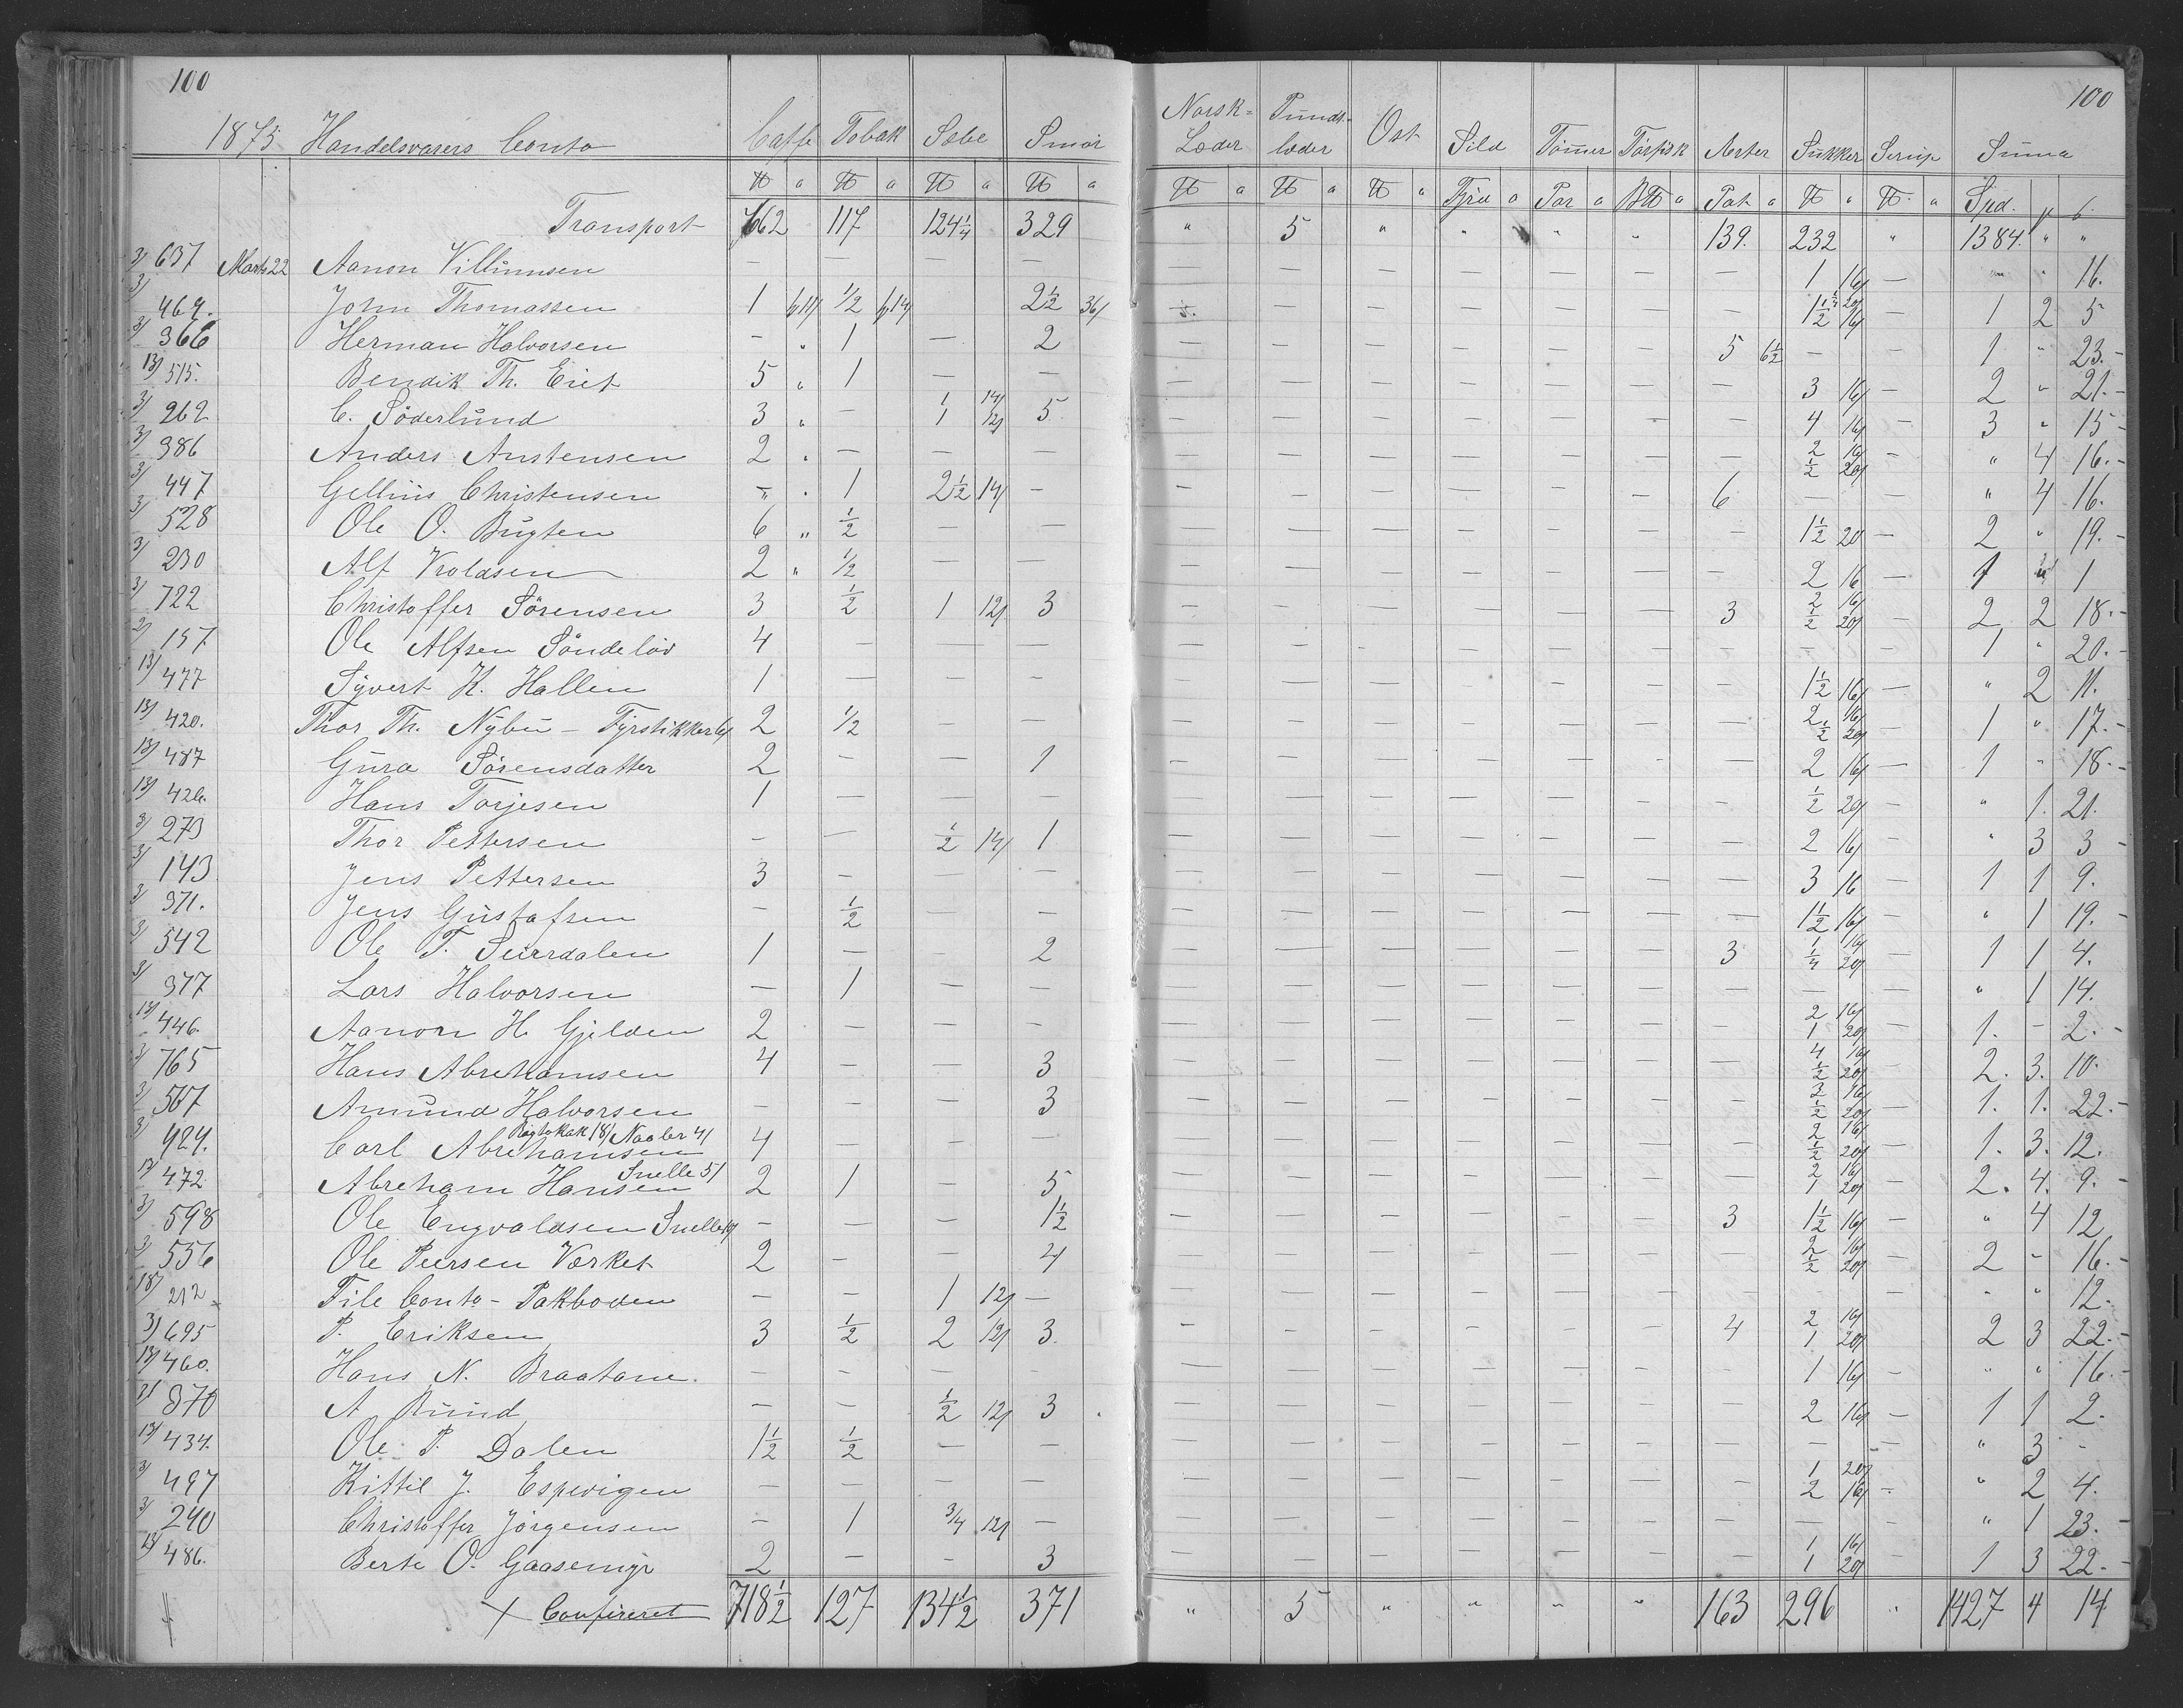 100 100
1873 Handelsvarers Conto Caffe Tobak Sæbe Smör Norsk= Læder Pundt- læder Ost Sild Tömer Törfisk Aerter Sukker Serup Suma
Transport 662 117 124 1/4 329 " 5 " " " " 139. 232 " 1384. " "
3/ 637 Marts 22 Aanon Villumsen — — — — — — — — — — — 1 16/ — " " 16.
3/ 464. John Thomassen 1 1/2 2 1/2 36/ — — — — — — 1/4 20/ 1 1/2 16/ — 1 2 5
3/ 366 Herman Halvorsen — " 1 — 2 — — — — — — 5 6 1/2 — — 1 " 23.-
13/ 515. Bendik Th. Eiet 5 " 1 — — — — — — — — — 3 16/ — 2 " 21.-
3/ 262 C. Söderlund 3 " — 1 14/ 1 12/ 5 — — — — — — — 4 16/ — 3 " 15-
3/ 386 Anders Anstensen 2 " — — — — — — — — — — 2 16/ 1/2 20/ — " 4 16.-
3/ 447 Gellius Christensen — " 1 2 1/2 14/ — — — — — — — 6 — — " 4 16.
3/ 528 Ole O. Bugten 6 " 1/2 — — — — — — — — — 1 1/2 20 — 2 " 19.-
3/ 230 Alf Kroldsen 2 " 1/2 — — — — — — — — — 2 16 — 1 1
3/ 722 Christoffer Sörensen 3 1/2 1 12/ 3 — — — — — — 3 2 16/ 1/2 20/ — 2 2 18.-
2/ 157 Ole Alfsen Söndelöv 4 — — — — — — — — — — — — 1 " 20.-
13/ 477 Syvert K. Hallen 1 — — — — — — — — — — 1 1/2 16/ — " 2 11.
13/ 420. Thor Th. Nybu - Fyrstikker 6/ 2 1/2 — — — — — — — — — 2 16/ 1/2 20/ — 1 " 17.-
13/ 487 Gura Sörensdatter 2 — — 1 — — — — — — — 2 16/ — 1 " 18.-
13/ 426. Hans Torjesen 1 — — — — — — — — — — 1/2 20/ — " 1. 21.
3/ 273 Thor Pettersen — — 1/2 14/ 1 — — — — — — — 2 16/ — " 3 3 -
3/ 143 Jens Pettersen 3 — — — — — — — — — 3 16 — 1 1 9.
3/ 371. Jens Gustafsen — 1/2 — — — — — — — — — 1 1/2 16/ — " 1 19.-
3/ 542 Ole T. Surrdalen 1 — — 2 — — — — — — 3 1 16/ 1/4 20/ — 1 1 4.
3/ 377 Lars Halvorsen — 1 — — — — — — — — — — — " 1 14.
13/ 446. Aanon H. Gjelden 2 — — — — — — — — — — 2 16/ 1 20/ 1. - 2.-
3/ 765 Hans Abrehamsen 4 — — 3 — — — — — — — 4 16/ 1/2 20/ — 2. 3. 10.
3/ 507 Amund Halvorsen — — — 3 — — — — — — — 3 16/ 1/2 20/ — 1. 1. 22.-
Rögtobak 18/ Nagler 4/
3/ 424. Carl Abrehamsen 4 — — — — — — — — — — 2 16/ 1/2 20/ — 1. 3. 12.
Snelle 5/
13/ 472 Abreham Hansen 2 1 — 5 — — — — — — — 2 16/ 1 20/ — 2. 4. 9.-
3/ 598 Ole Engvaldsen Snelle — — — 1 1/2 — — — — — — 3 1 1/2 16/ — " 4 12
3/ 556 Ole Peersen Værket 2 — — 4 — — — — — — — 2 16/ 1/2 20/ — 2 - 16.-
18/ 212 File Conto - Pakboden — — 1 12/ — — — — — — — — — — " " 12.
3/ 695 P. Eriksen 3 1/2 2 12/ 3. — — — — — — 4 2 16/ 1 20/ — 2 3 22.-
13/ 460. Hans N. Braatane. — — — — — — — — — — 1 16/ — " " 16.-
3/ 870 A Rund — — 1/2 12/ 3 . — — — — — — — 2 16/ — 1 1 2.
13/ 434. Ole P. Dalen 1 1/2 1/2 — — — — — — — — — — — " 3 -
3/ 497 Kittil J. Espevigen — — — — — — — — — — — 1 20/ 2 16/ — " 2 4.
3/ 240 Christoffer Jörgensen — 1 3/4 12/ — — — — — — — — — — " 1 23.-
13/ 486. Berte O. Gaasemyr 2 — — 3 — — — — — — — 1 16/ 1 20/ — 1 3 22.-
Confireret 718 1/2 127 134 1/2 371 " 5 " " " " 163 296 " 1427 4 14